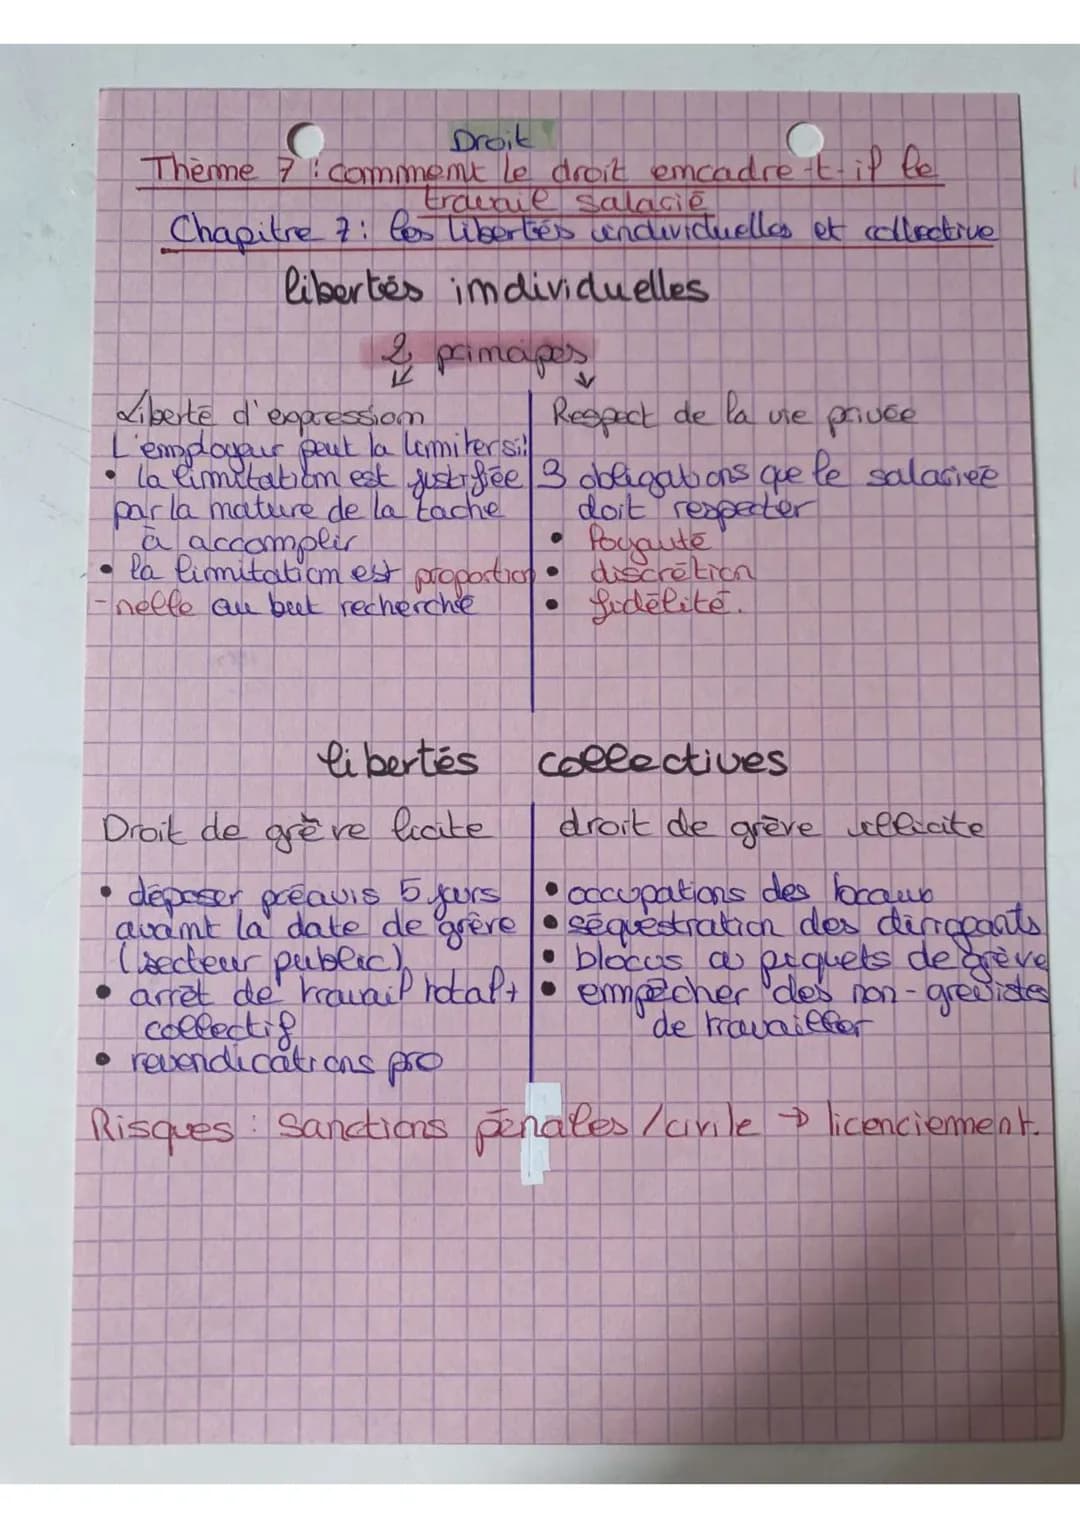 Droit
Thème 7 : comment le droit encadre-t-il le
travail salarié
Chapitre 7 : les libertés individuelles et collective
libertés individuelles
2 principes
Liberté d'expression
L'employeur peut la limiter si:
• la limitation est justifiée
par la nature de la tache
à accomplir
• la limitation est proportion
-nelle au but recherché
Respect de la vie privée
3 obligations que le salariée
doit respecter
• loyauté
• discrétion
• fidélité.
libertés collectives
Droit de grève licite
• déposer préavis 5 jurs
avant la date de grève
(secteur public)
• arrêt de travail total +
collectif
• revendications pro
droit de grève illicite
• occupations des locaux
• séquestration des dirigeants
• blocus piquets de grève
• empêcher des non-grevistes
de travailler
Risques : Sanctions pénales / civile → licenciement.